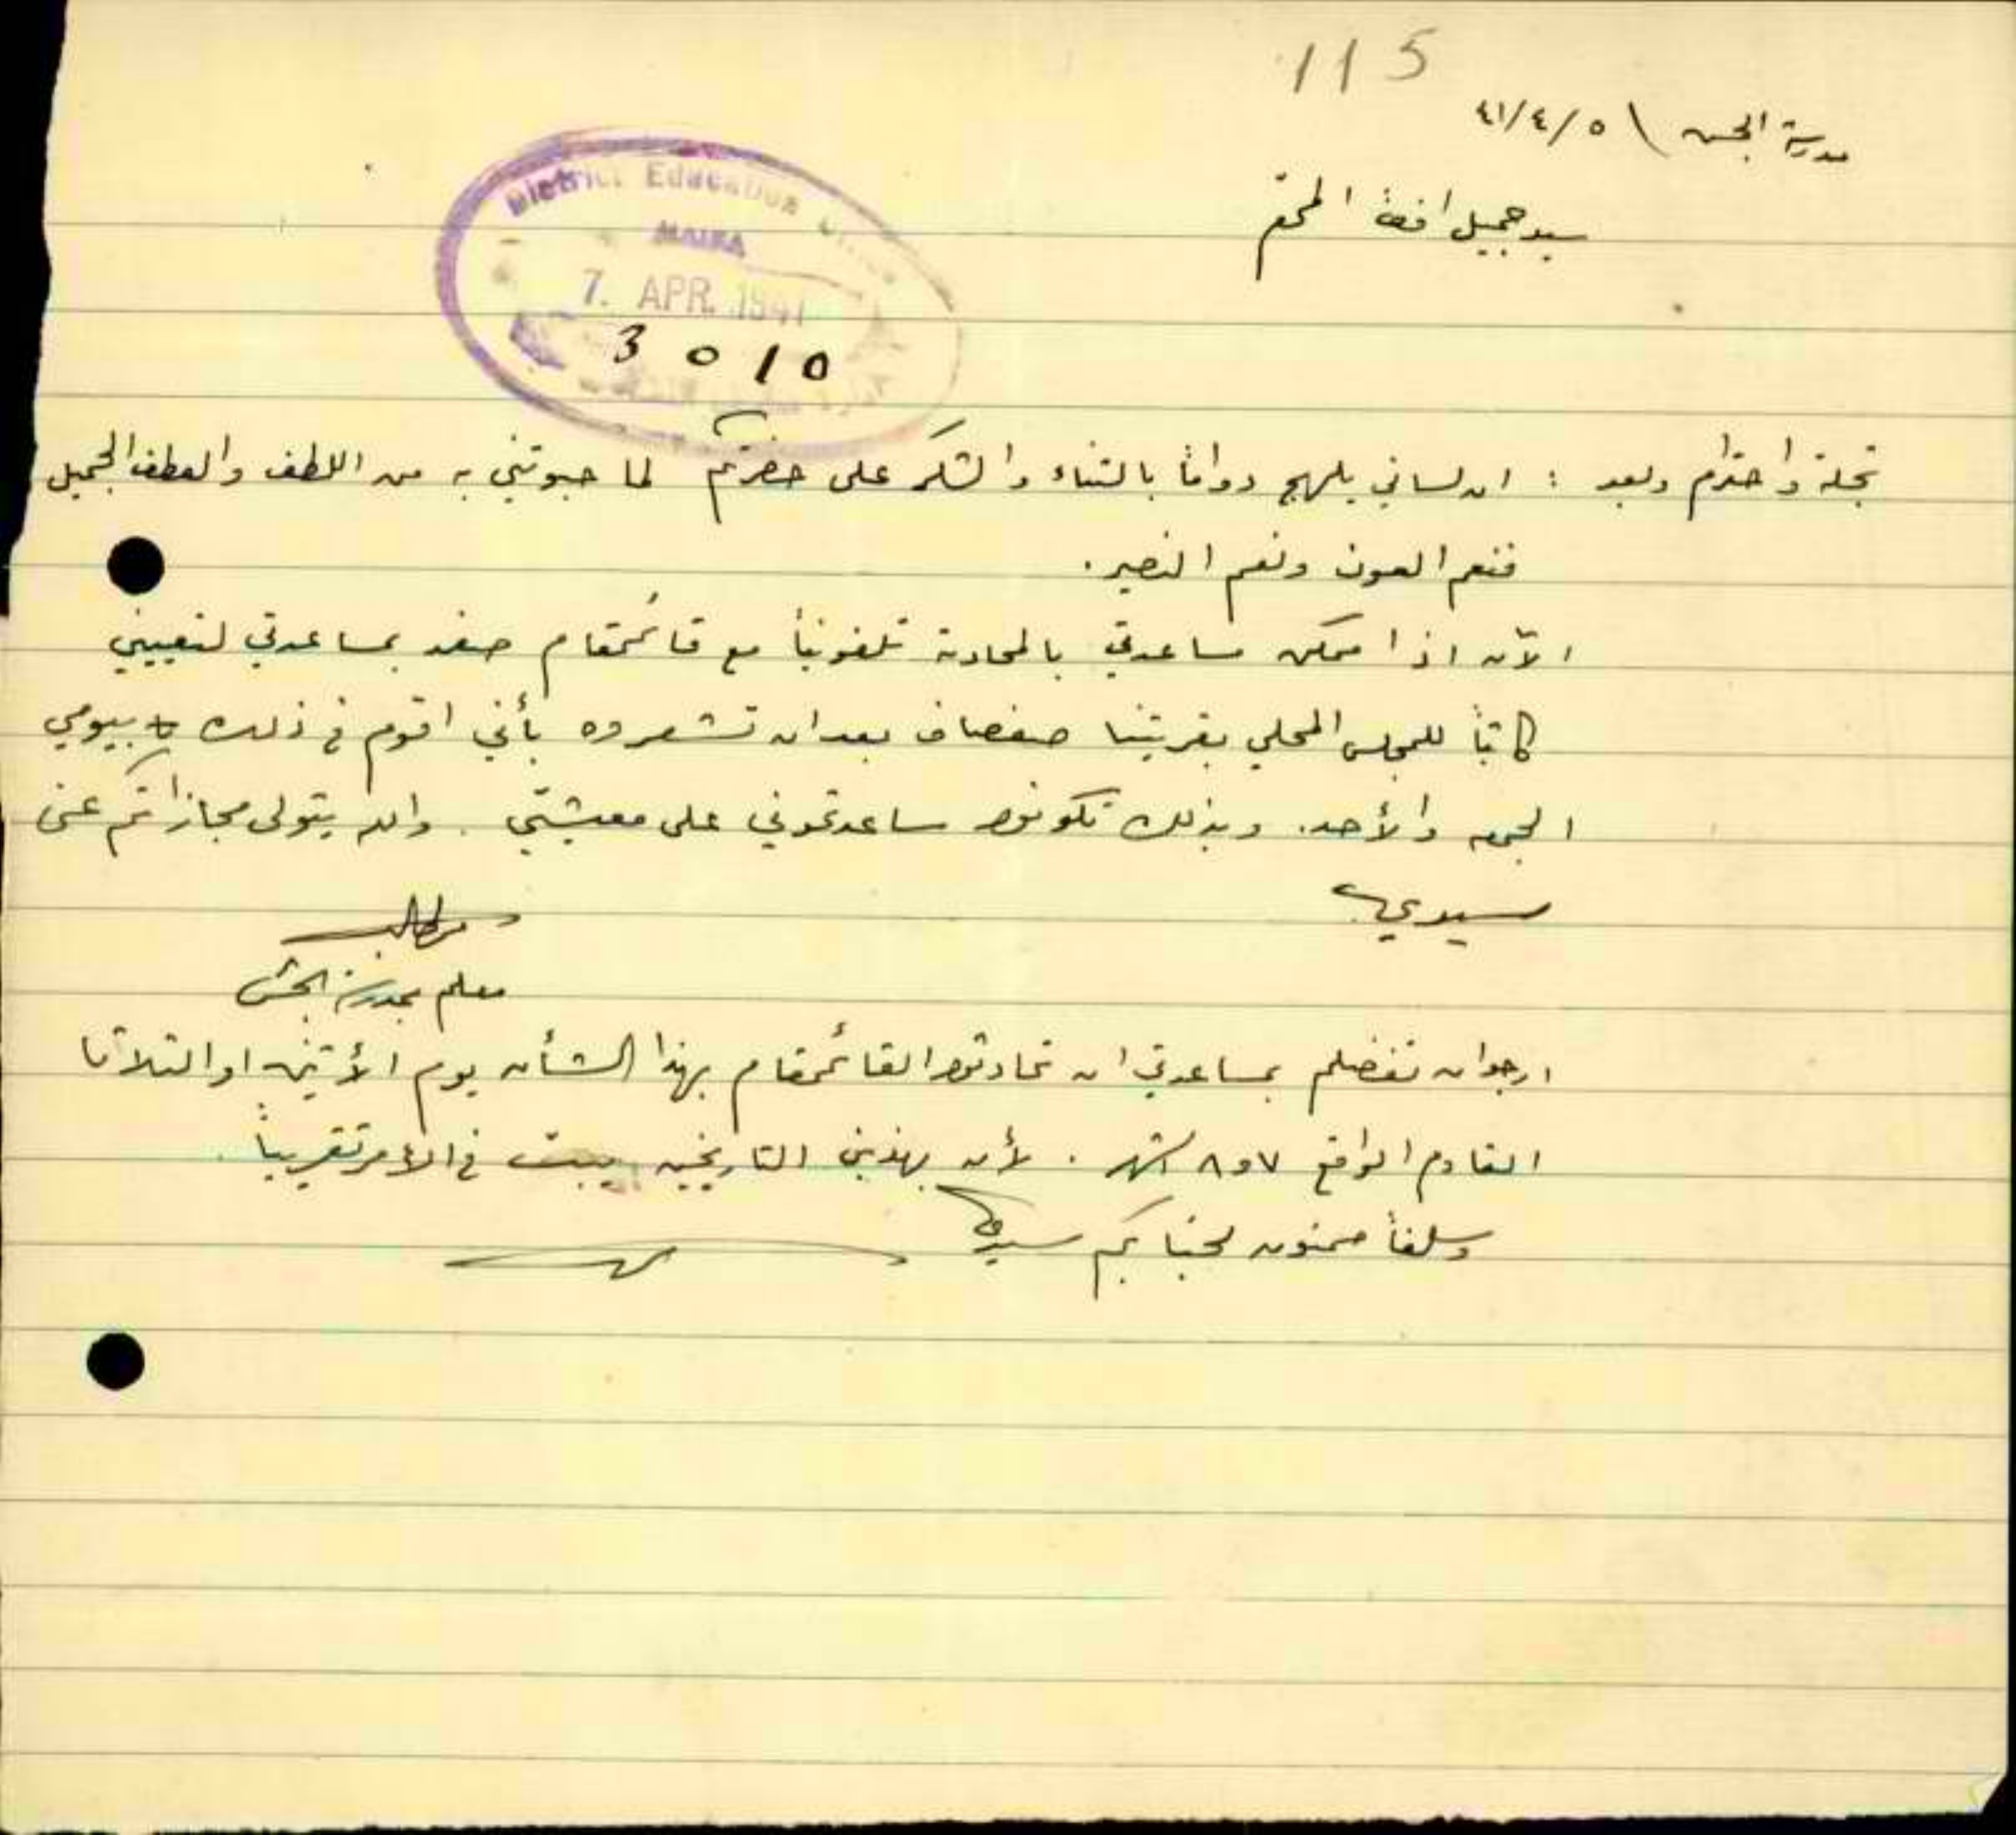 115
مدرسة الجش \ ٤١/٤/٥
سيد جميل افندي المحترم
District Education Office
HAIFA
7. APR. 1941
3010
تجلة واحترام وبعد : ان لساني يلهج دواماً بالثناء والشكر على حضرتكم لما حبوتني به من اللطف والعطف الجميل
فنعم العون ونعم النصير.
الآن اذا ممكن مساعدتي بالمحادثة تلفونياً مع قائمقام صفد بمساعدتي لتعييني
كاتباً للمجلس المحلي بقريتنا صفصاف بعد ان تشعروه بأني اقوم في ذلك بيومي
الجمعه والأحد. وبذلك تكونوا ساعدتموني على معيشتي. والله يتولى مجازاتكم عني
سيدي
معلم بمدرسة الجش
ارجو ان تفضلتم بمساعدتي ان تحادثوا القائمقام بهذا الشأن يوم الأثنين او الثلاثا
القادم الواقع ٧ و٨ الشهر . لأن بهذين التاريخين يبت في الأمر تقريباً .
وسلفاً ممنون لجنابكم سيدي